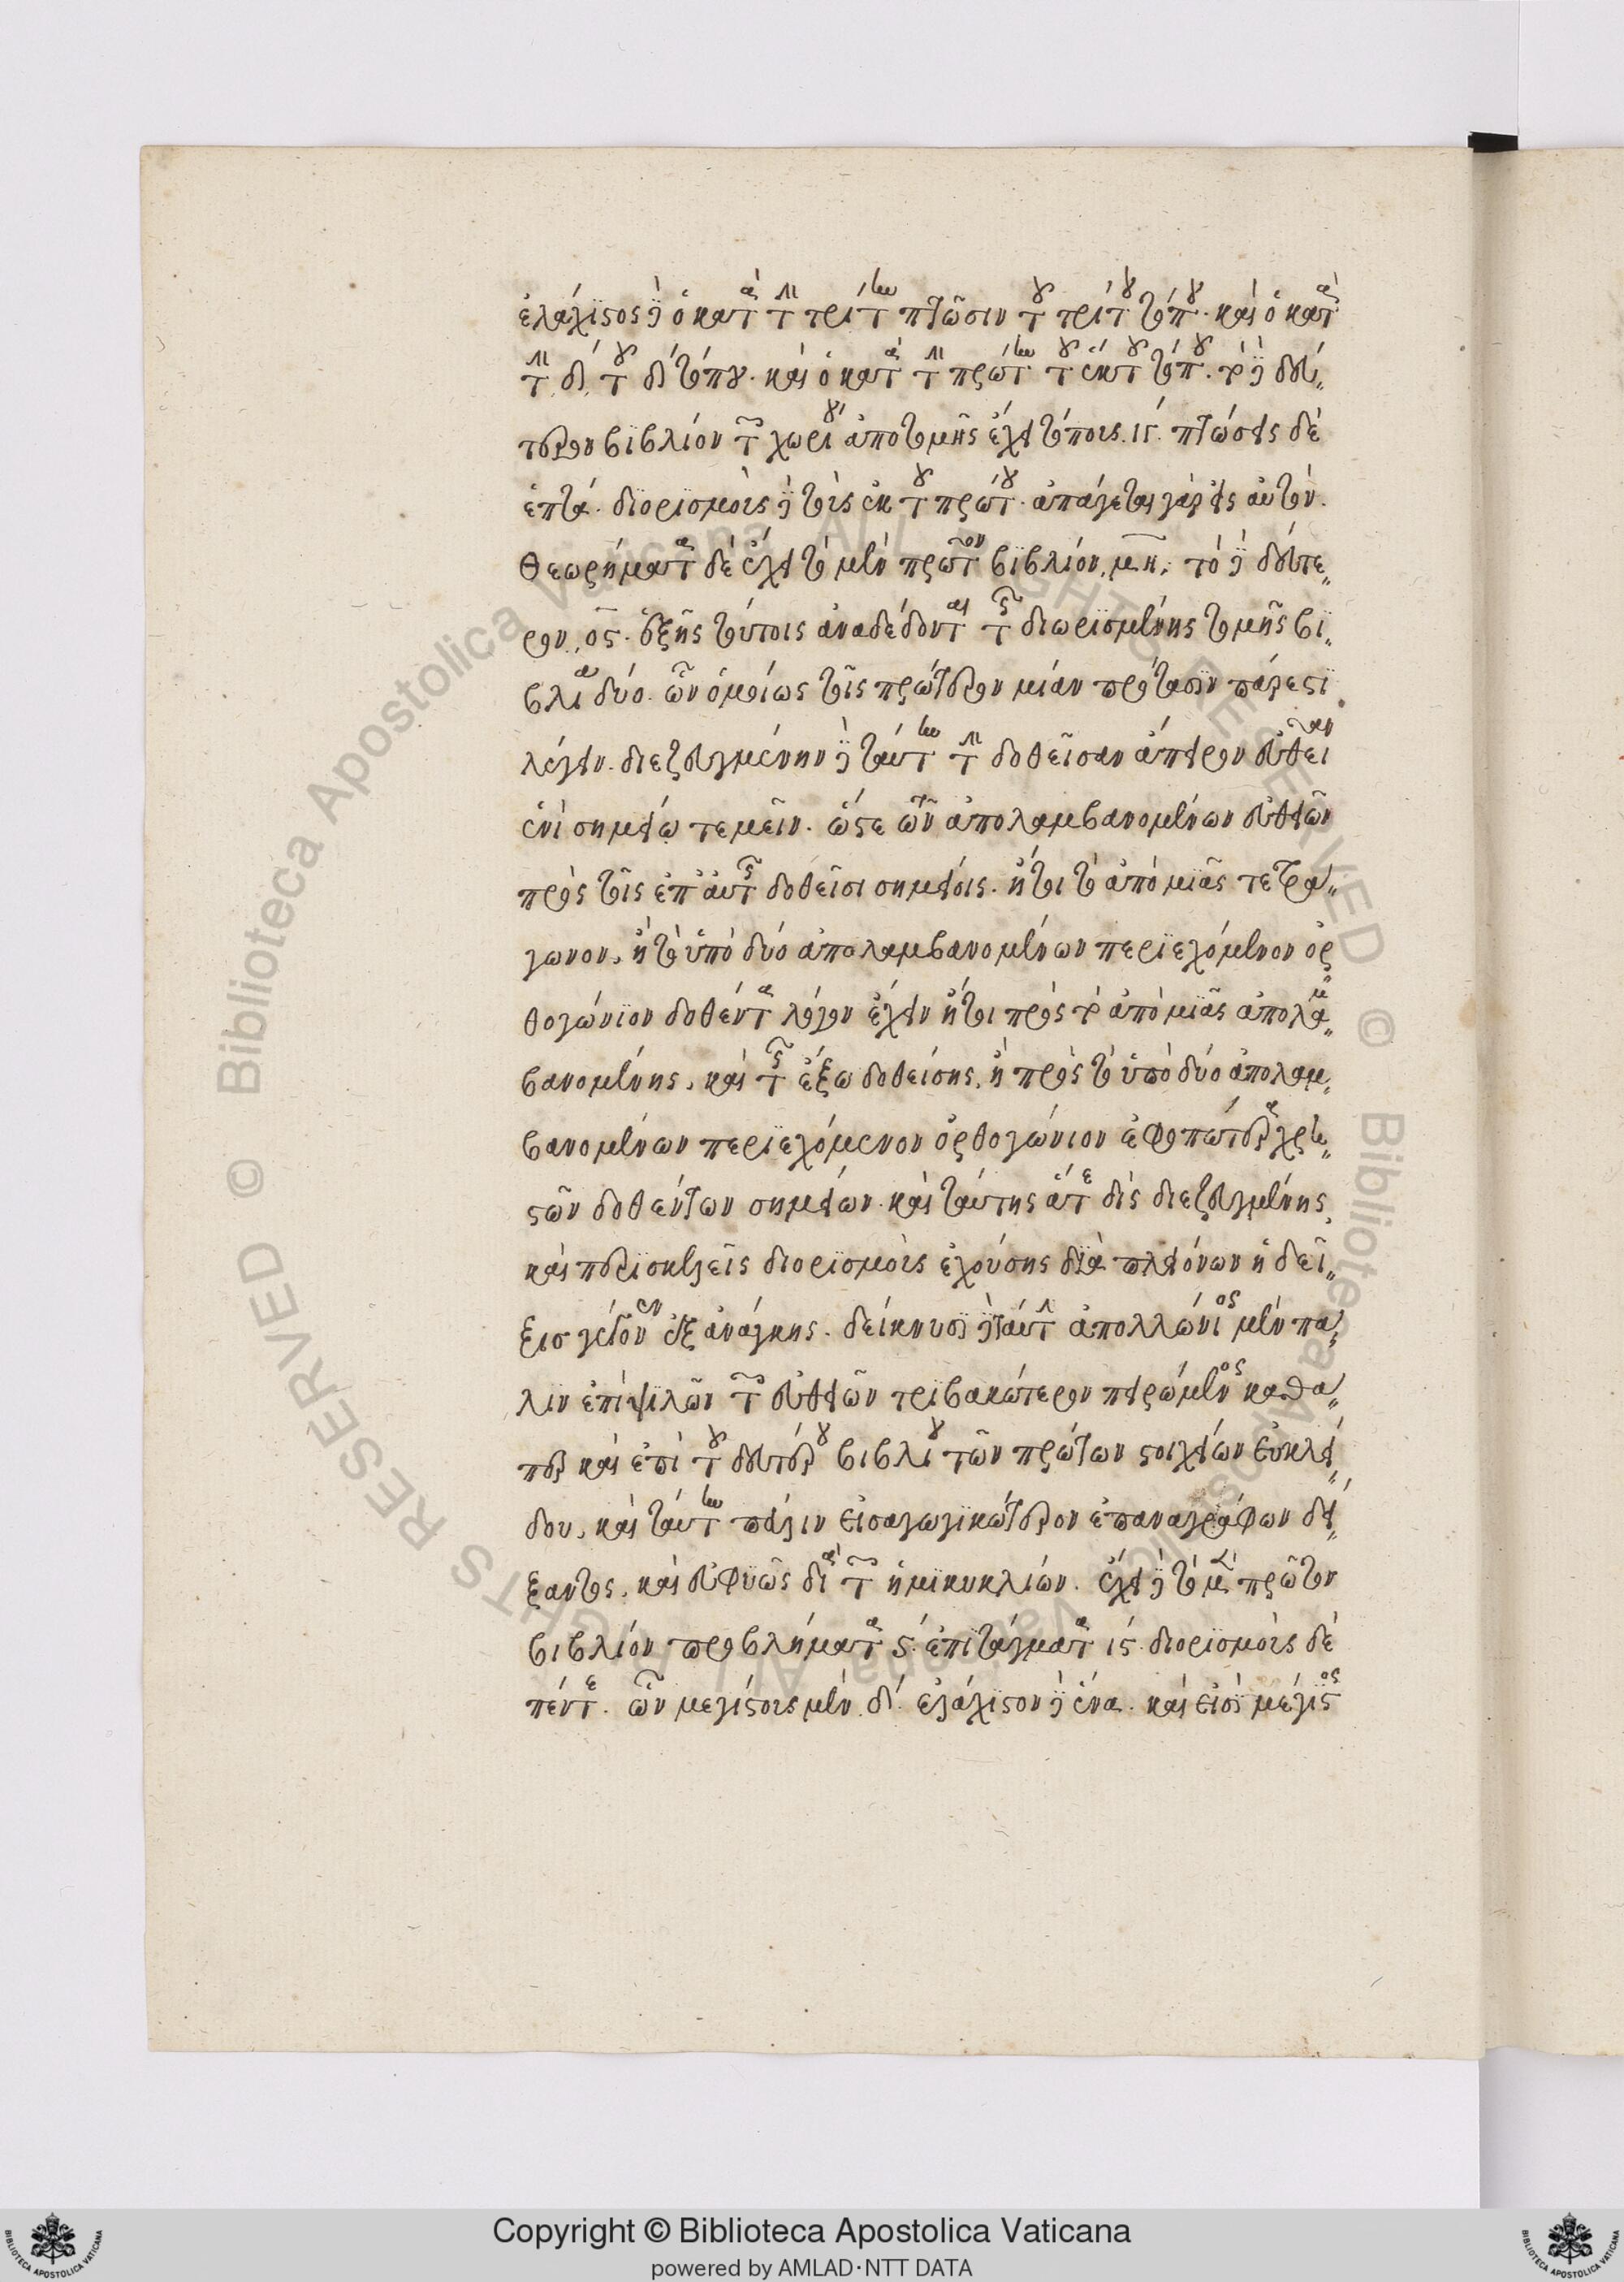 ἐλάχιστος δὲ ὁ κατὰ τὴν τρίτην πτῶσιν τοῦ τρίτου τόπου. καὶ ὁ κατὰ
τὴν δ΄. τοῦ δ΄ τόπου. καὶ ὁ κατὰ τὴν πρώτην τοῦ ἕκτου τόπου. τὸ δὲ δεύ
τερον βιβλίον τῶν χωρίου ἀποτομῆς ἔχει τόπους. ιγ. πτώσεις δὲ
ἑπτὰ. διορισμοὺς δὲ τοὺς ἐκ τοῦ πρώτου. ἀπάγεται γὰρ εἰς αὐτόν.
θεωρήματα δὲ ἔχει τὸ μὲν πρῶτον βιβλίον, μη. τὸ δὲ δεύτε
ρον, ος. ἑξῆς τούτοις ἀναδέδονται τῆς διωρισμένης τομῆς βι
βλία δύο. ὧν ὁμοίως τοῖς πρότερον μίαν πρότασιν πάρεστι
λέγειν. διεζευγμένην δὲ ταύτην. τὴν δοθεῖσαν ἄπειρον εὐθεῖαν
ἑνὶ σημείῳ τεμεῖν. ὥστε τῶν ἀπολαμβανομένων εὐθειῶν
πρὸς τοῖς ἐπ' αὐτῆς δοθεῖσι σημείοις. ἤτοι τὸ ἀπὸ μιᾶς τετρά
γωνον, ἢ τὸ ὑπὸ δύο ἀπολαμβανομένων περιεχόμενον ὀρ
θογώνιον δοθέντα λόγον ἔχειν ἤτοι πρὸς τὸ ἀπὸ μιᾶς ἀπολαμ
βανομένης, καὶ τῆς ἔξω δοθείσης, ἢ πρὸς τὸ ὑπὸ δύο ἀπολαμ
βανομένων περιεχόμενον ὀρθογώνιον ἐφ' ὁπότερα χρὴ
τῶν δοθέντων σημείων. καὶ ταύτης ἅτε δὶς διεζευγμένης
καὶ περισκελεῖς διορισμοὺς ἐχούσης διὰ πλειόνων ἡ δεῖ
ξις γέγονεν ἐξ ἀνάγκης. δείκνυσι δὲ ταύτην ἀπολλώνιος μὲν πά
λιν ἐπὶ ψιλῶν τῶν εὐθειῶν τριβακώτερον πειρώμενος καθά
περ καὶ ἐπὶ τοῦ δευτέρου βιβλίου τῶν πρώτων στοιχείων εὐκλεί
δου, καὶ ταύτην πάλιν εἰσαγωγικώτερον ἐπαναγράφων δεί
ξαντος, καὶ εὐφυῶς διὰ τῶν ἡμικυκλίων. ἔχει δὲ τὸ μὲν πρῶτον
βιβλίον προβλήματα ς΄. ἐπιτάγματα ις΄. διορισμοὺς δὲ
πέντε. ὧν μεγίστους μὲν. δ΄. ἐλάχιστον δὲ ἕνα. καὶ εἰσὶ μέγιστος
Copyright © Biblioteca Apostolica Vaticana
powered by AMLAD·NTT DATA